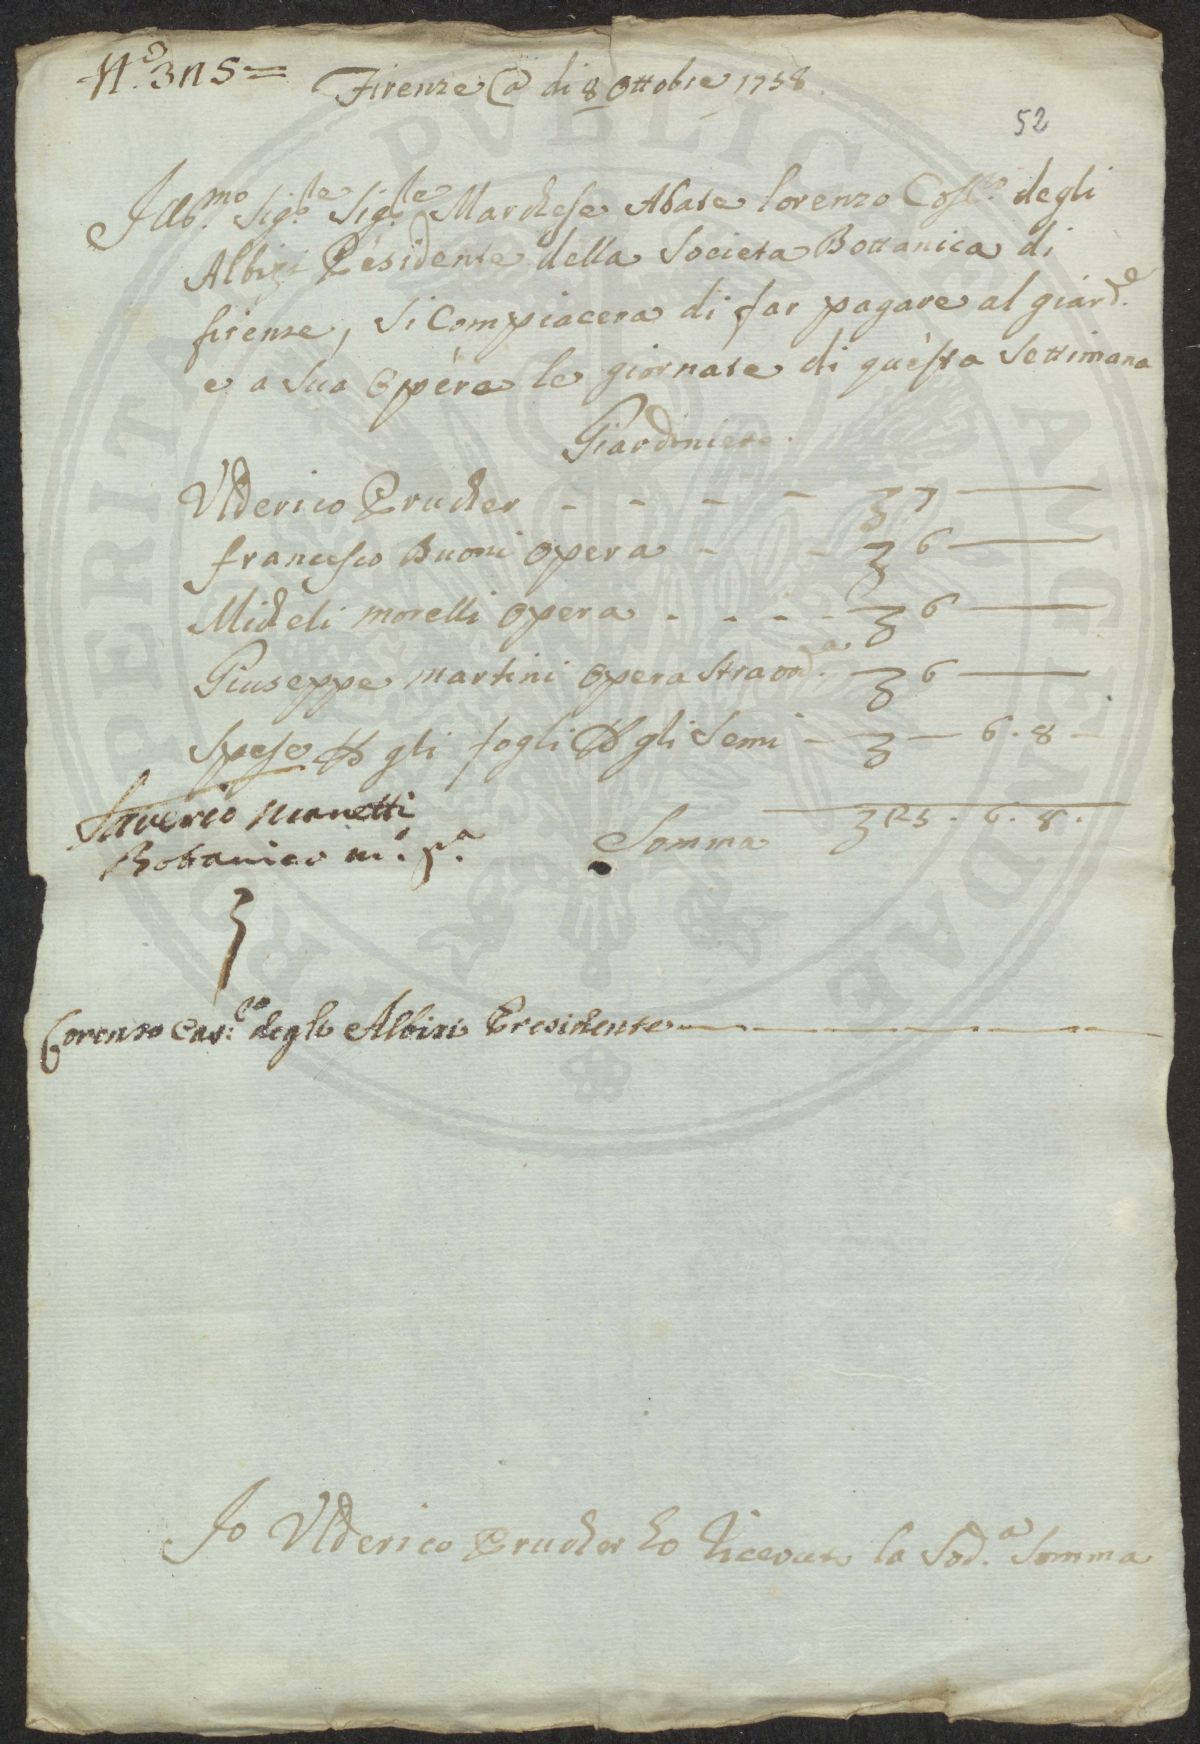 N.o 3115=
Firenze @ di 8 Ottobre 1758.
52
Illo.mo Sig.re Sig.re Marchese Abate Lorenzo Cost.o degli
Albizi Presidente della Societa Bottanica di
firenze, Si Compiacera di far pagare al giard.e
e a Sua Opera le giornate di questa Settimana
Giardiniere.
Ulderico Prucher - - - - 7
francesco Buoni Opera - - 6
Micheli morelli Opera - - - - 6
Giuseppe martini Opera Straord.a 6
Spese gli fogli gli Semi - - 6.8 -
Saverio Manetti
Botanico m.o p.a
Somma 25.6.8.
Lorenzo Cas.to degli Albizi Presidente
Io Ulderico Prucher ho Riceuto la Sod.a Somma
PERITA
PVBLIC